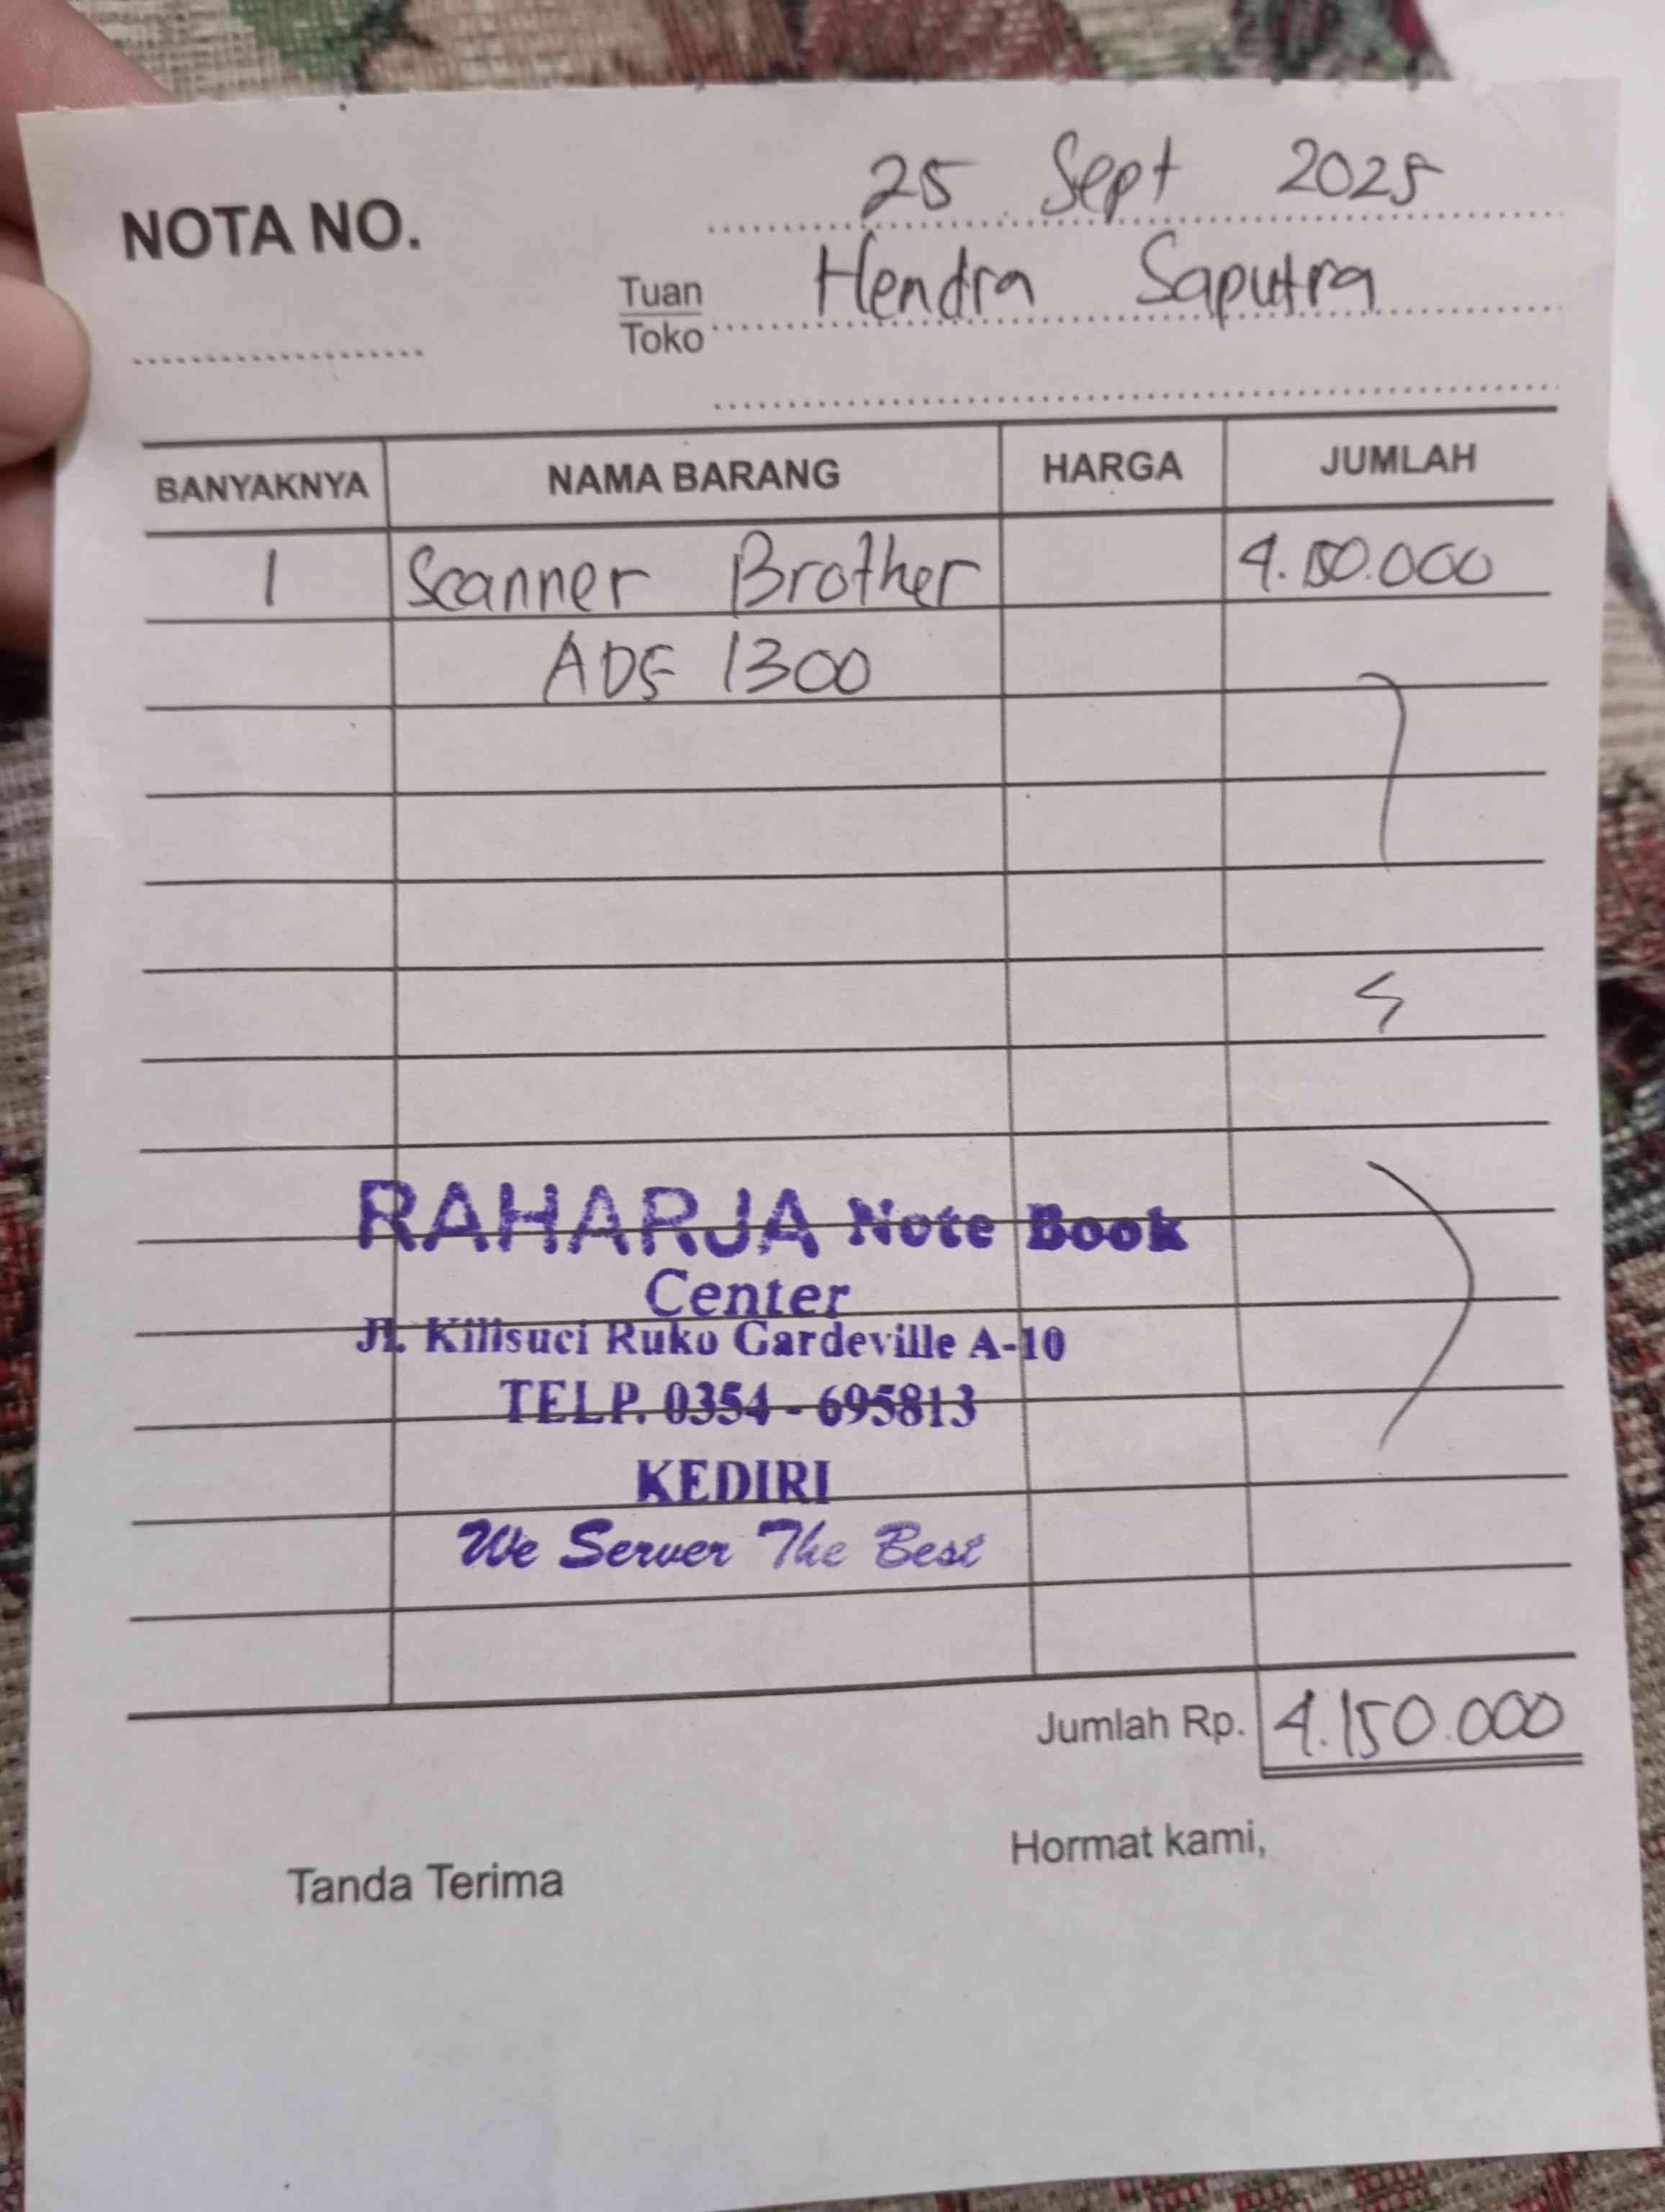 25 Sept 2025
NOTA NO.
Tuan
Toko
Hendra Saputra
BANYAKNYA NAMA BARANG HARGA JUMLAH
1 Scanner Brother 4.150.000
ADS 1300
RAHARJA Note Book
Center
Jl. Kilisuci Ruko Gardeville A-10
TELP. 0354 - 695813
KEDIRI
We Server The Best
Jumlah Rp. 4.150.000
Tanda Terima
Hormat kami,